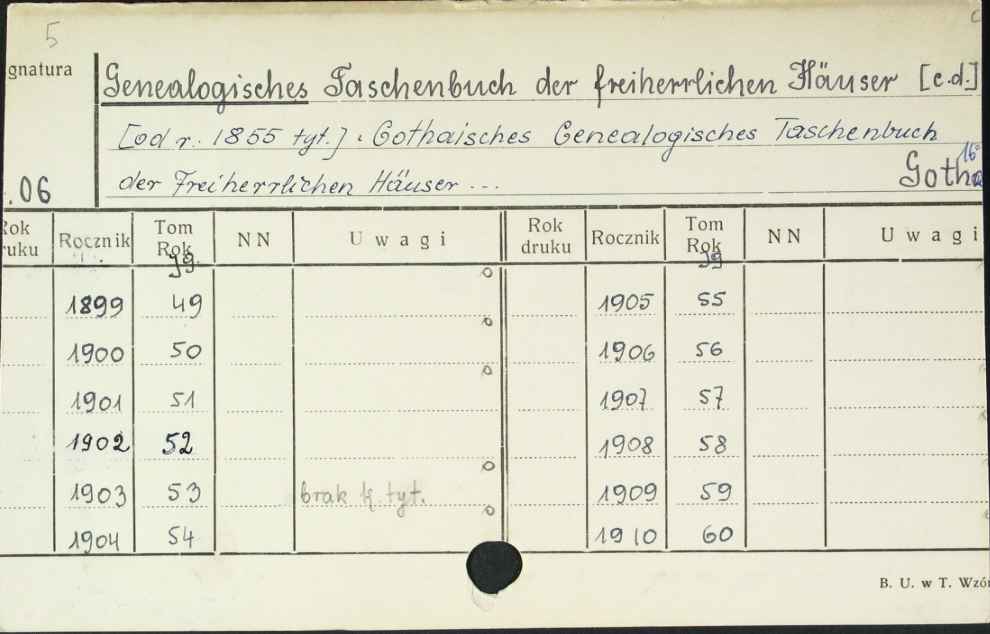 5
gnatura
Genealogisches Taschenbuch der freiherrlichen Häuser [c.d.]
[od r. 1855 tyt.]. Gothaisches Genealogisches Taschenbuch
16°
.06 der Freiherrlichen Häuser ... Gotha
Rok druku Rocznik Tom Rok NN Uwagi Rok druku Rocznik Tom Rok NN Uwagi
Jg. Jg
1899 49 1905 55
1900 50 1906 56
1901 51 1907 57
1902 52 1908 58
1903 53 brak k. tyt. 1909 59
1904 54 1910 60
B. U. w T. Wzór